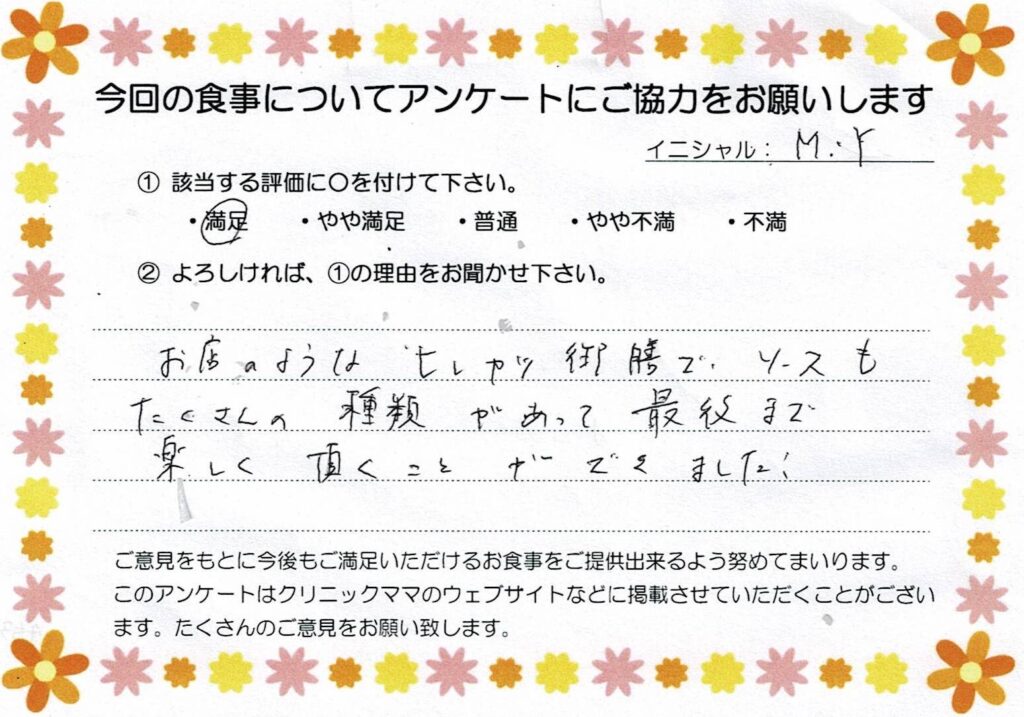 今回の食事についてアンケートにご協力をお願いします
イニシャル： M.Y
① 該当する評価に〇を付けて下さい。
・満足 ・やや満足 ・普通 ・やや不満 ・不満
② よろしければ、①の理由をお聞かせ下さい。
お店のような ヒレカツ御膳で、ソースも
たくさんの 種類 があって 最後まで
楽しく 頂くこと ができました！
ご意見をもとに今後もご満足いただけるお食事をご提供出来るよう努めてまいります。
このアンケートはクリニックママのウェブサイトなどに掲載させていただくことがござい
ます。たくさんのご意見をお願い致します。